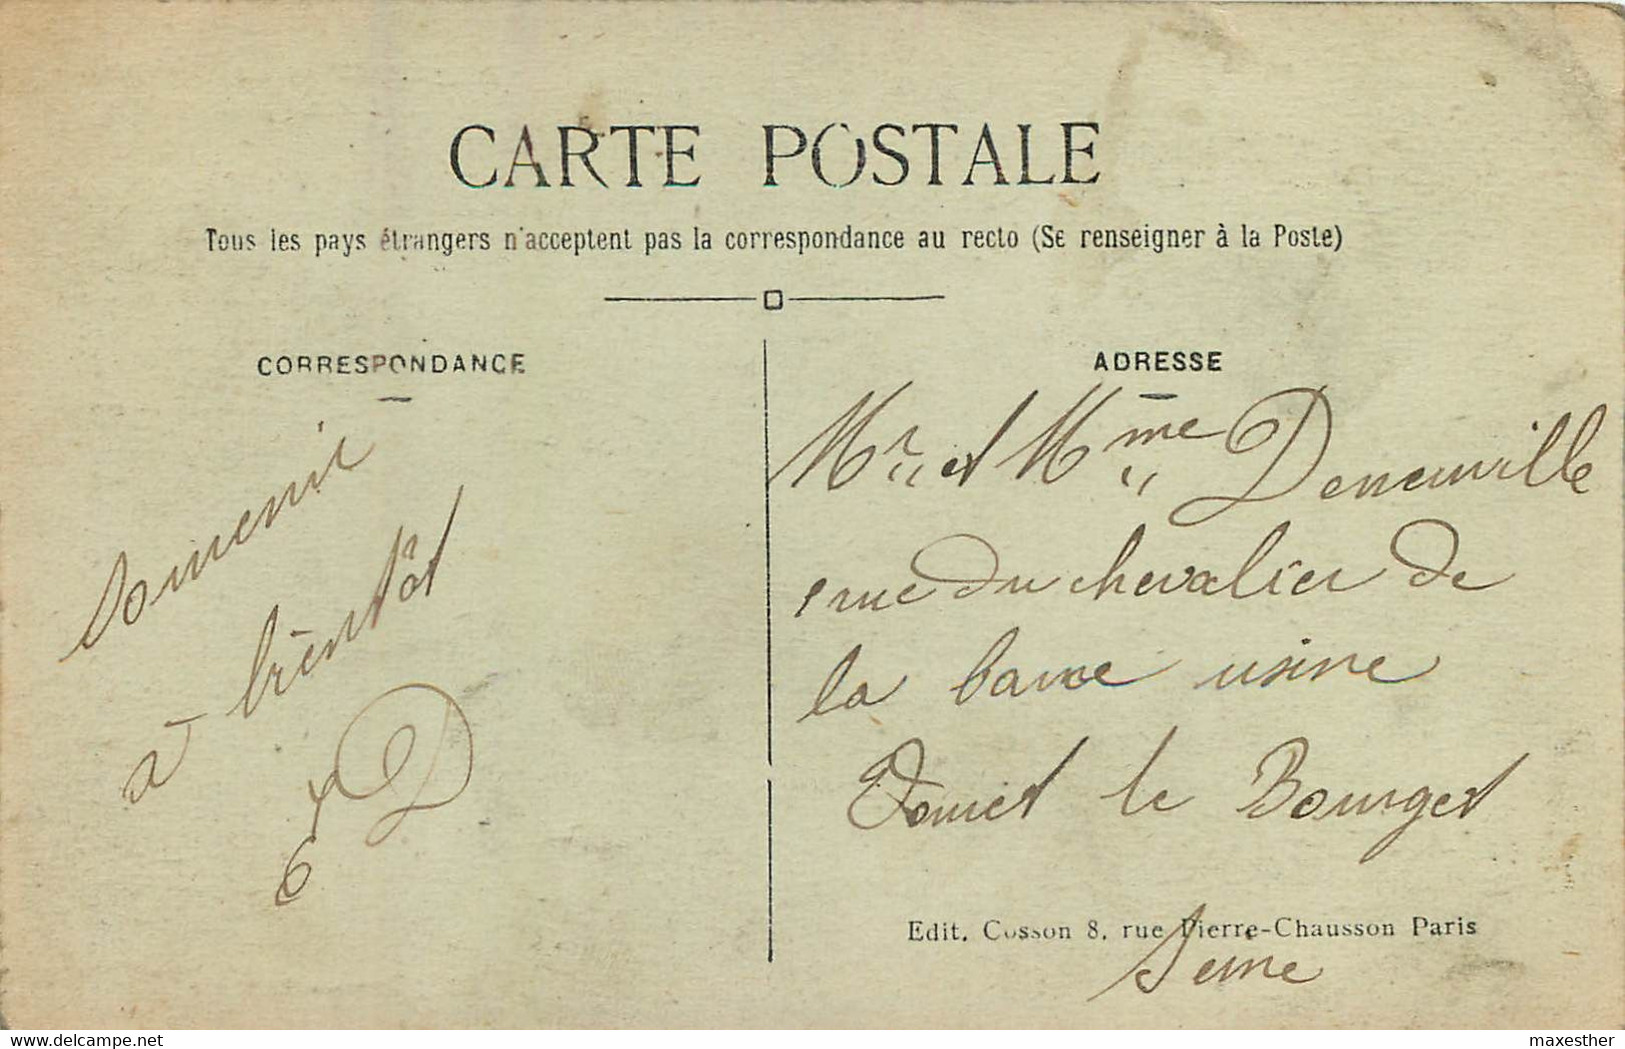 CARTE POSTALE
Tous les pays étrangers n'acceptent pas la correspondance au recto (Se renseigner à la Poste)
CORRESPONDANCE
Souvenir
à bientôt
ADRESSE
Mr et Mme Deneuville
rue du chevalier de
la barre usine
le Bourget
Edit. Cosson 8, rue Pierre-Chausson Paris
Seine
delcampe.net
maxesther